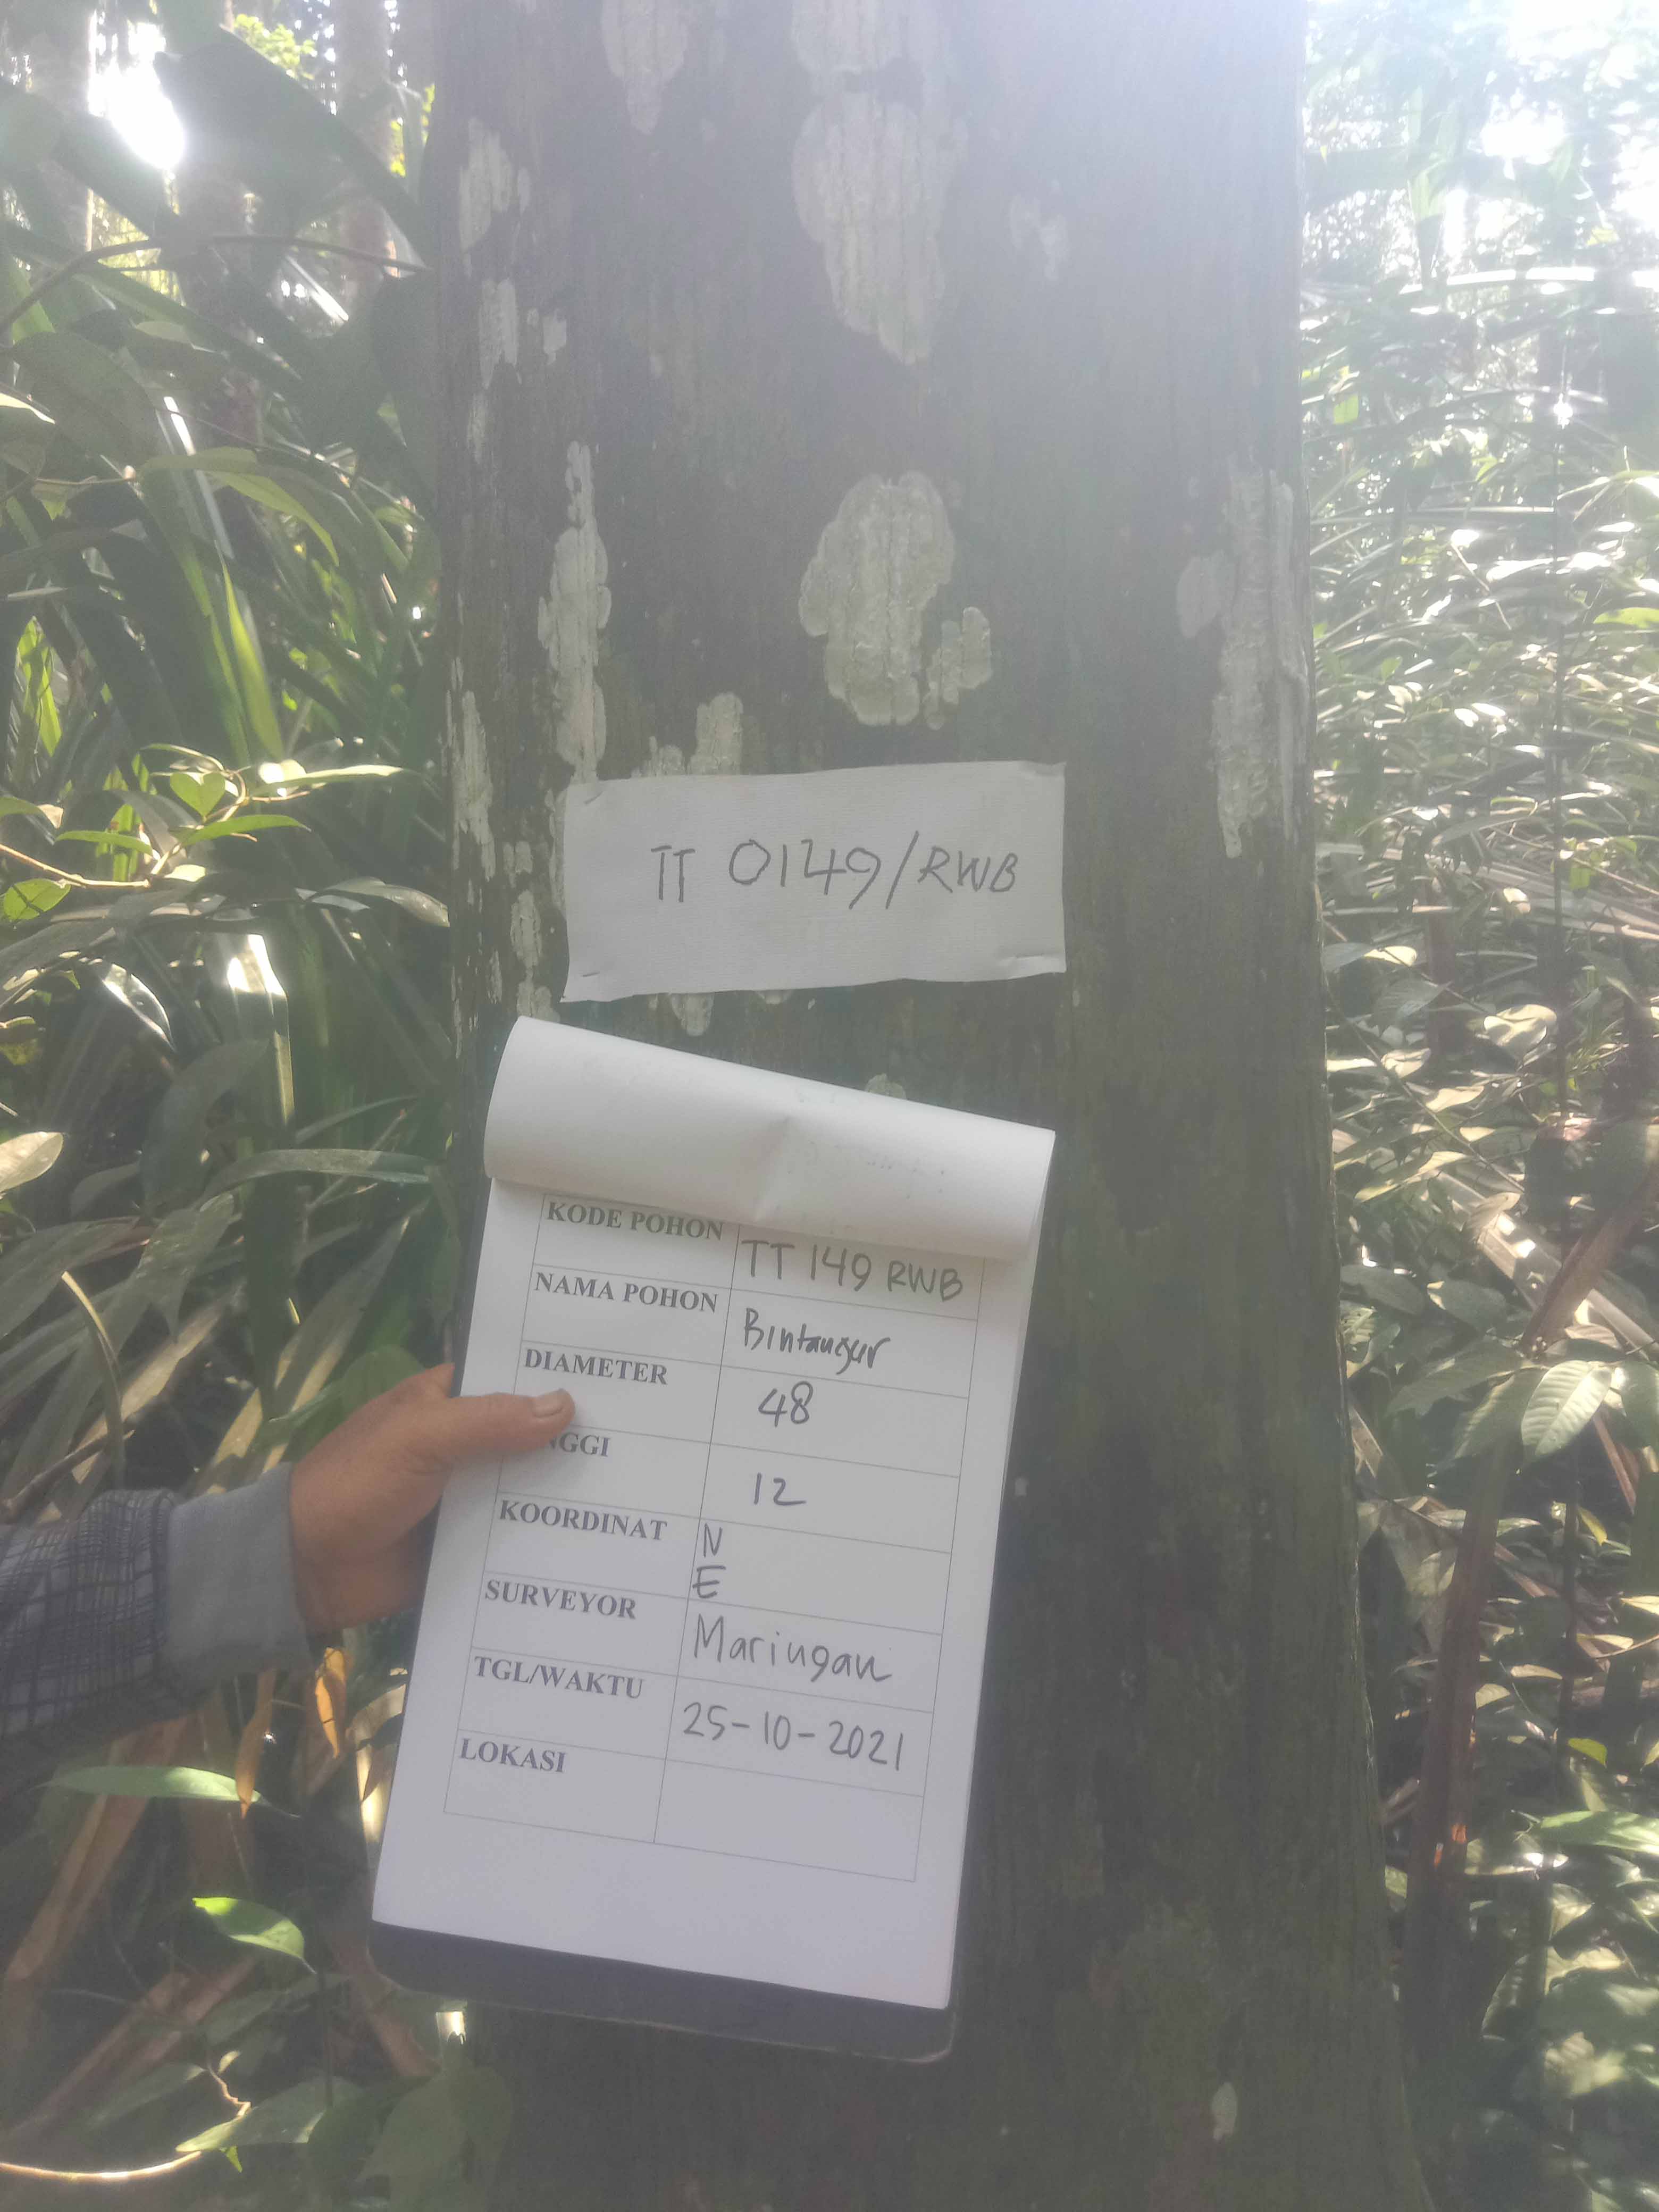 TT 0149/RWB
KODE POHON TT 149 RWB
NAMA POHON Bintangur
DIAMETER 48
NGGI 12
KOORDINAT N
E
SURVEYOR Maringan
TGL/WAKTU 25-10-2021
LOKASI